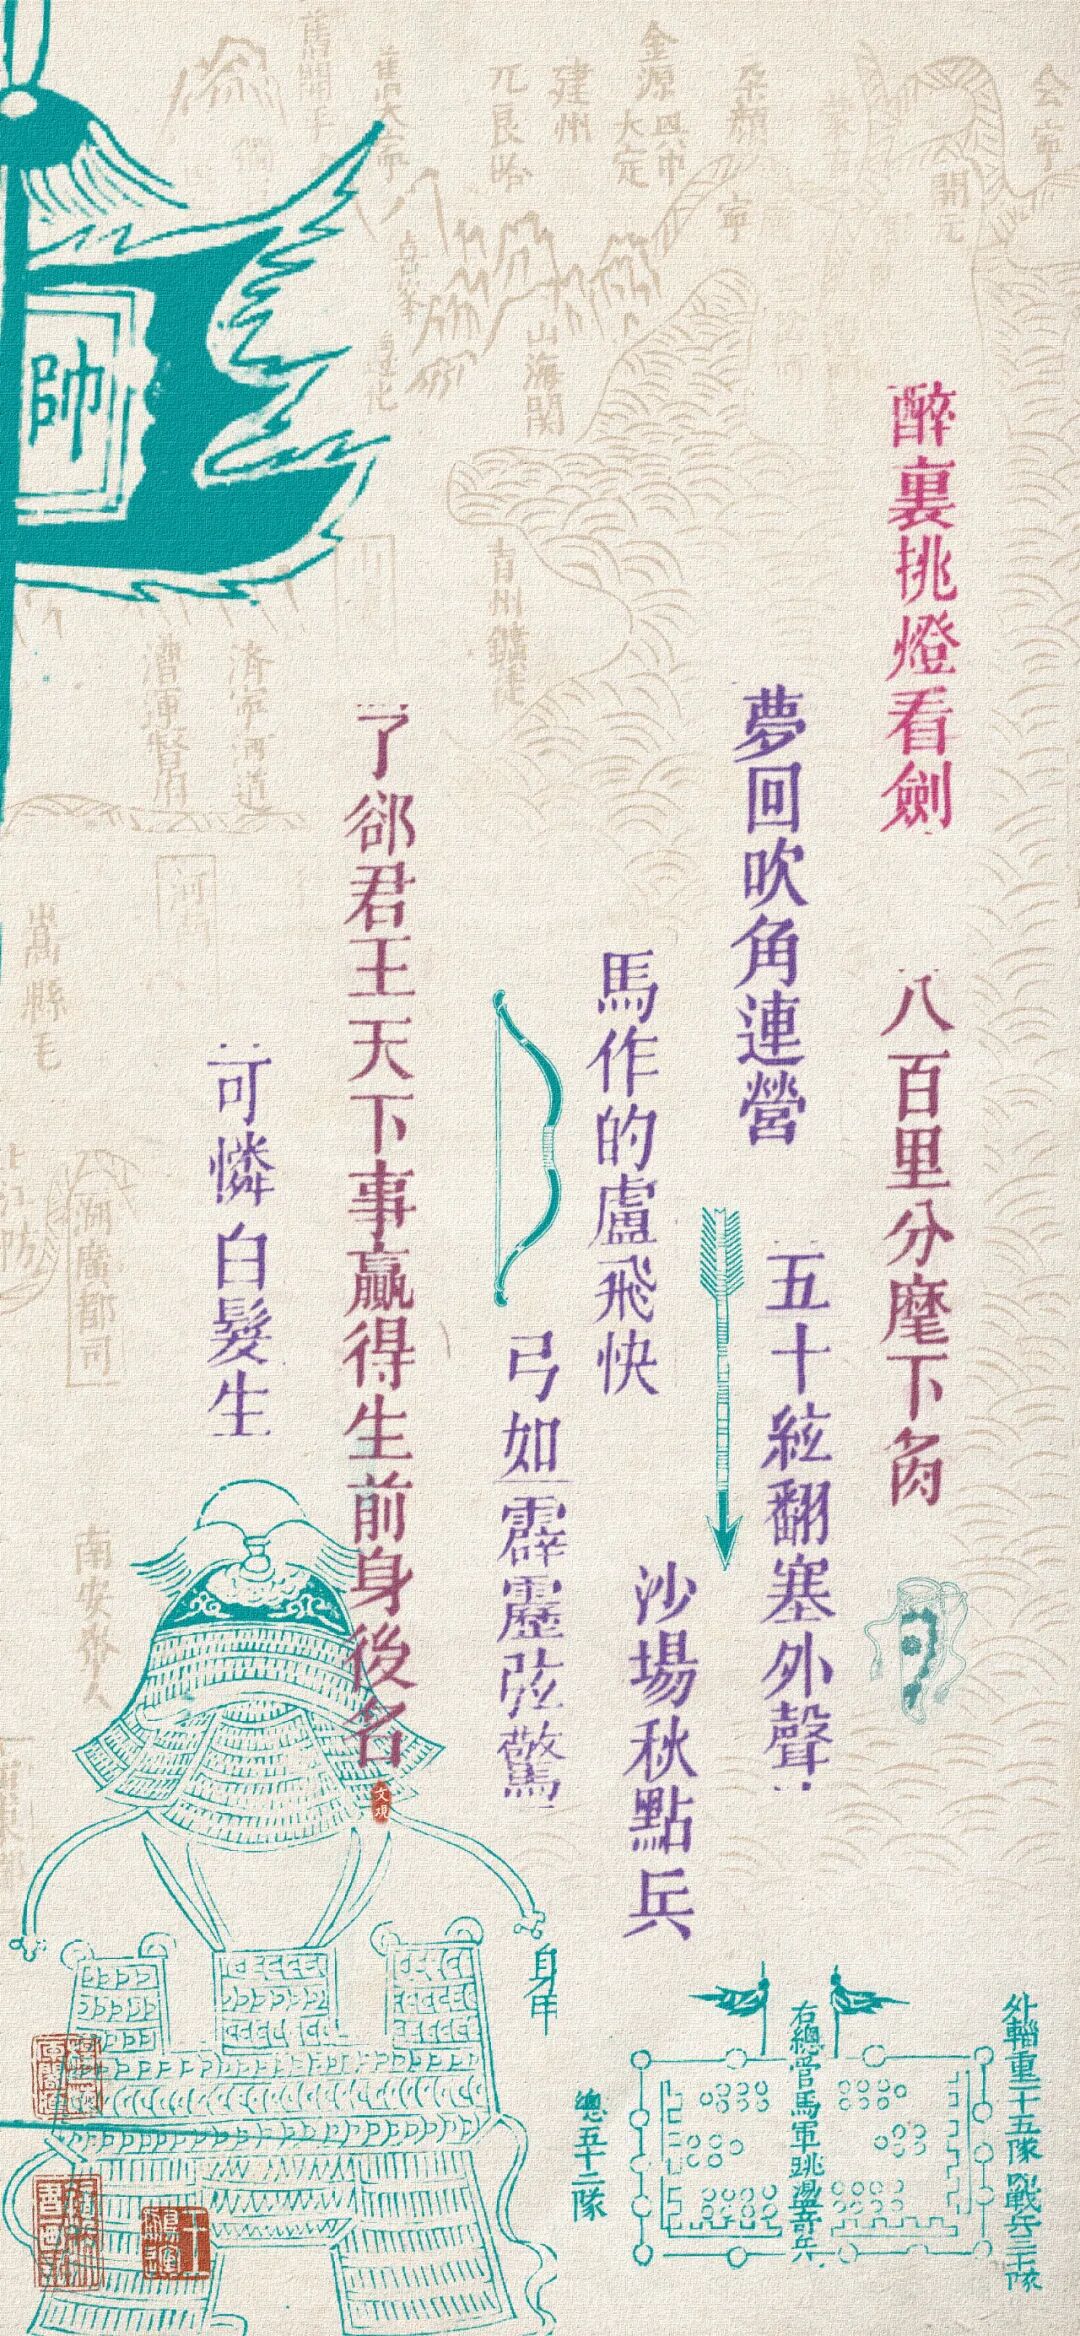 醉裏挑燈看劍
夢回吹角連營
八百里分麾下炙
五十絃翻塞外聲
沙場秋點兵
馬作的盧飛快
弓如霹靂弦驚
了郤君王天下事贏得生前身後名
可憐白髮生
帥
文觀
身甲
外輜重二十五隊
戰兵三十隊
右總管馬軍跳盪奇兵
總五十二隊
山海関
建州
金源
大定
兀良哈
開元
會寧
南安
漕運督府
河
嵩縣毛
湖廣都司
青州